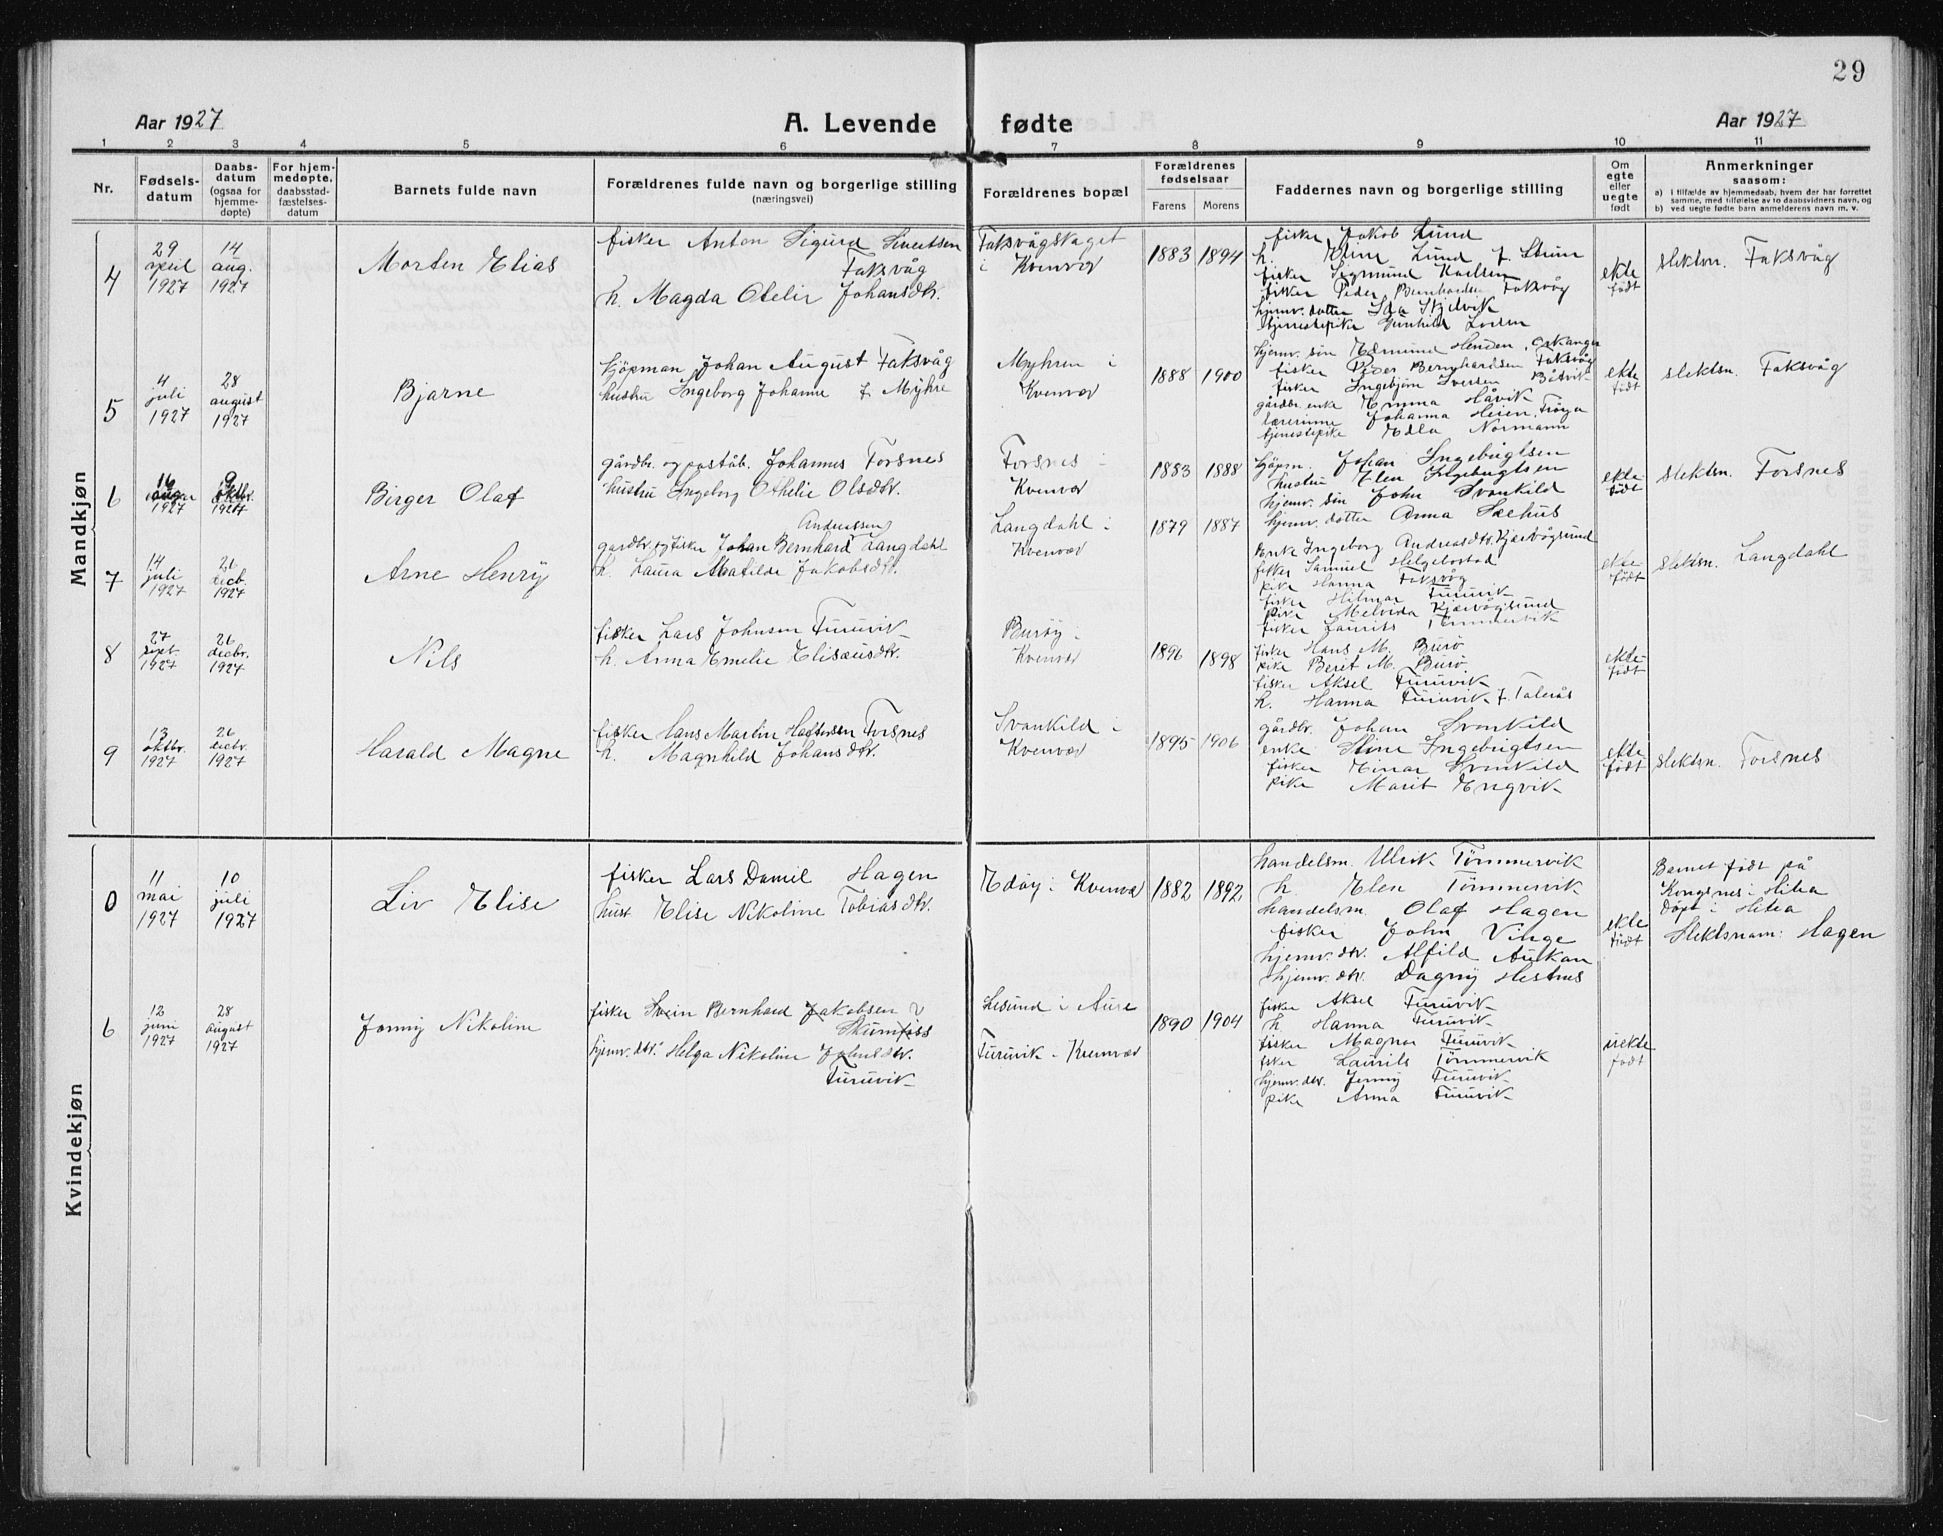 29
Aar 1927
A. Levende fødte
Aar 1927
1 2 3 4 5 6 7 8 9 10 11
Nr.
Fødsels-
datum
Daabs-
datum
(ogsaa for
hjemme-
døpte)
For hjem-
medøpte.
daabsstad-
fæstelses-
datum
Barnets fulde navn
Forældrenes fulde navn og borgerlige stilling
(næringsvei)
Forældrenes bopæl
Forældrenes
fødselsaar
Farens Morens
Faddernes navn og borgerlige stilling
Om
egte
eller
uegte
født
Anmerkninger
saasom:
a) I tilfælde av hjemmedaab, hvem der har forrettet
samme, med tilføielse av to daabsvidners navn, og
b) ved uegte fødte barn anmelderens navn m. v.
Mandkjøn
4
29
april
1927
14
aug.
1927
Morten Elias
fisker Anton Sigurd
Faksvåg
h. Magda Otelie Johansdtr.
Faksvågskaget
i Kvenvær
1883 1894
fisker Jakob Lund
h. Eline Lund f. Strøm
fisker Sigmund Karlsen
fisker Peder Bernhardsen Faksvåg
hjemv. dotter Ida Skjelvik
tjenestepike Gunhild
ekte
født
slektsn. Faksvåg
5
4
juli
1927
28
august
1927
Bjarne
kjöpman Johan August Faksvåg
hustru Ingeborg Johanne f. Myhre
Myhren i
Kvenvær
1888 1900
hjemv. søn Edmund
fisker Peder Bernhardsen Faksvåg
fisker Ingebjørn Iversen Båtvik
gårdbr. enke Emma Håvik
lærerinne Johanna Heien, Frøya
tjenestepike Edla Normann
ekte
født
slektsn. Faksvåg
6
16
aug
1927
9
oktbr.
1927
Birger Olaf
gårdbr. og poståb. Johannes Forsnes
hustru Ingeborg Othelie Olsdtr.
Forsnes i
Kvenvær
1883 1888
kjöpm. Johan Ingebrigtsen
hustru Elen Ingebrigtsen
hjemv. søn John Svankild
hjemv. dotter Anna Sæhus
ekte
født
slektsn. Forsnes
7
14
juli
1927
26
decb.
1927
Arne Henry
Andreassen
gardbr. og fisker Johan Bernhard Langdahl
h. Laura Matilde Jakobsdtr.
Langdahl i
Kvenvær
1879 1887
Enke Ingeborg Andreasdtr. Kjærvågsund
fisker Samuel Helgebostad
pike Hanna Faksvåg
fisker Hilmar Furuvik
pike Melvida Kjærvågsund
fisker Laurits Tømmervik
ekte
født
slektsn. Langdahl
8
27
sept
1927
26
decbr.
1927
Nils
fisker Lars Johnsen Furuvik
h. Anna Emelie Elisæusdtr.
Burøy i
Kvenvær
1896 1898
fisker Hans M. Burø
pike Berit M. Burø
fisker Aksel Furuvik
h. Hanna Furuvik f. Talerås
ekte
født
9
13
oktbr.
1927
26
decbr.
1927
Harald Magne
fisker Hans Martin Haftorsen Forsnes
h. Magnhild Johansdtr.
Svankild i
Kvenvær
1895 1906
gårdbr. Johan Svankild
enke Stine Ingebrigtsen
fisker Einar Svankild
pike Marit Engvik
ekte
født
slektsn. Forsnes
Kvindekjøn
0
11
mai
1927
10
juli
1927
Liv Elise
fisker Lars Daniel Hagen
hust Elise Nikoline Tobiasdtr.
Edøy i Kvenvær
1882 1892
handelsm. Ulrik Tømmervik
h. Elen Tømmervik
handelsm. Olaf Hagen
fisker John Vinge
hjemv. dtr. Alfild Aukan
hjemv. dtr. Dagny Hestnes
ekte
født
Barnet født på
Kongsnes i Hitra
Døpt i Hitra
Slektsnam: Hagen
6
12
juni
1927
28
august
1927
Jenny Nikoline
fisker Svein Bernhard Jakobsen
Skumfoss
hjemv. dtr. Helga Nikoline Johnsdtr.
Furuvik
Lesund i Aure
Furuvik i Kvenvær
1890 1904
fisker Aksel Furuvik
h. Hanna Furuvik
fisker Magnar Furuvik
fisker Laurits Tømmervik
hjemv. dtr. Jenny Furuvik
pike Anna Furuvik
uekte
født